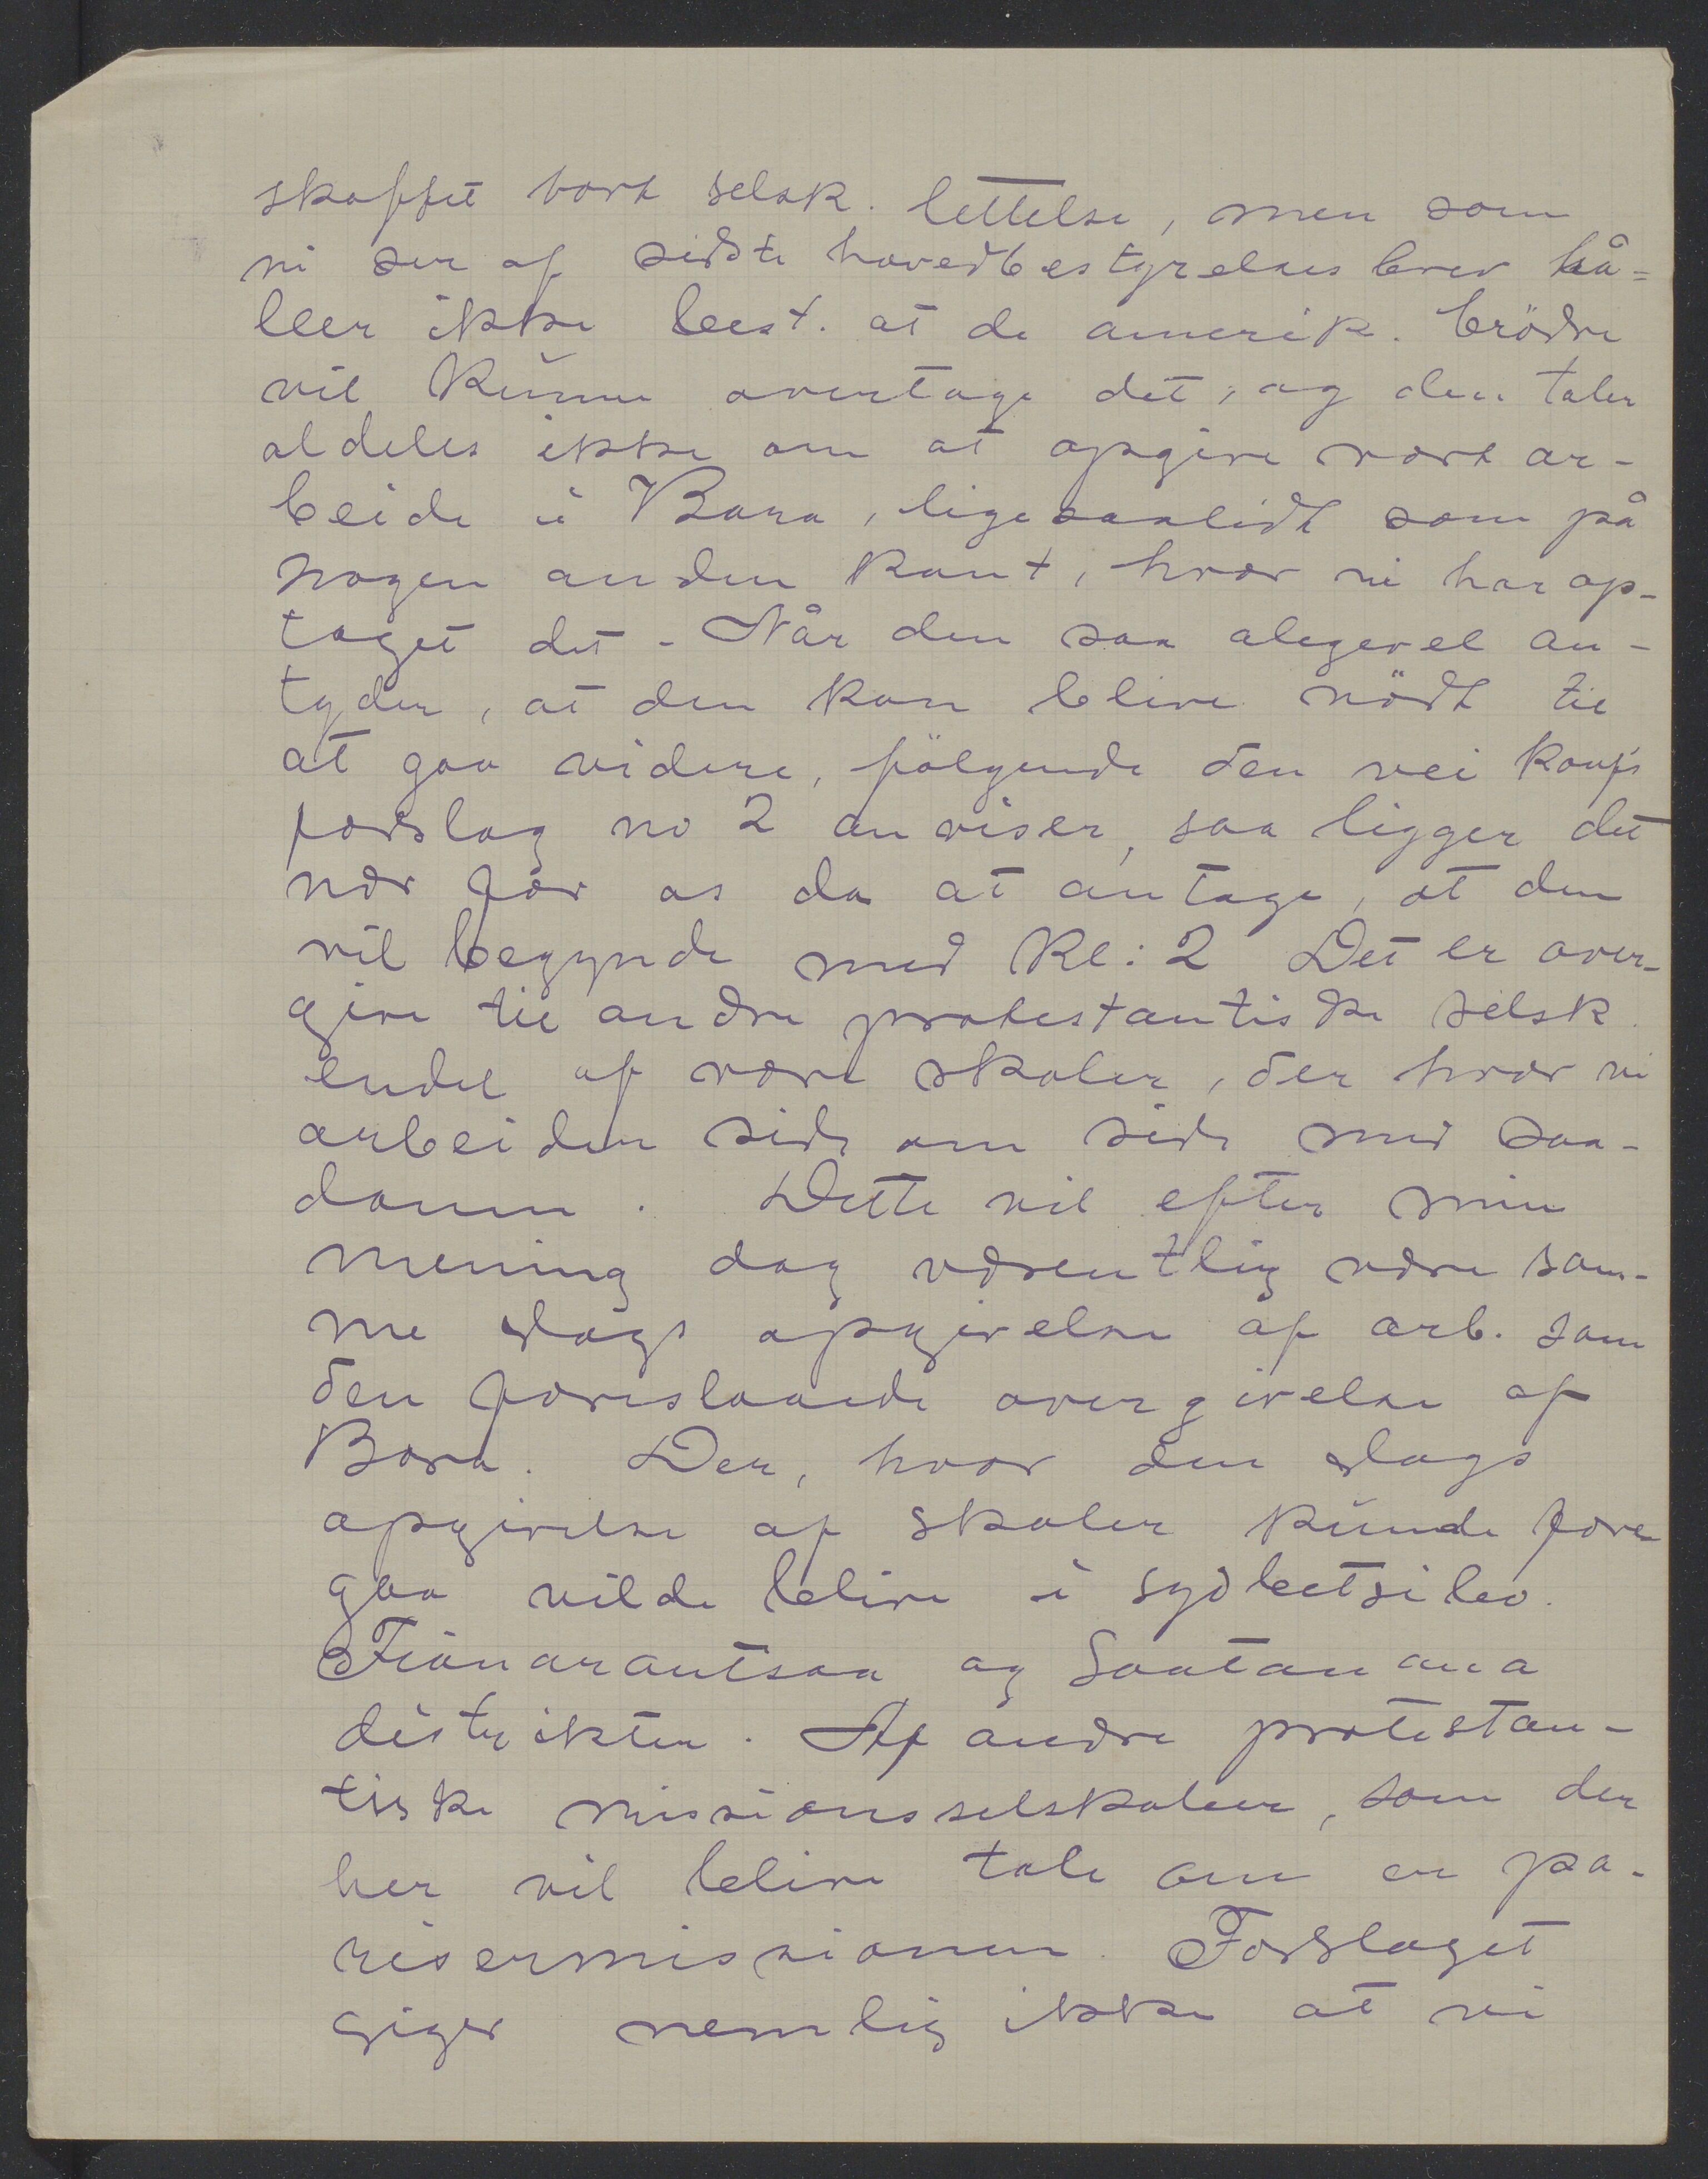 skaffet vort selsk. lettelse, men som
vi ser af sidste hovedbestyrelses brev hå=
ber ikke best. at de amerik. brödre
vil kunne overtage det, og den taler
aldeles ikke om at opgive vort ar-
beide i Bara, ligesaalidt som på
nogen anden kant, hvor vi har op-
taget det. - Når den saa aligevel an-
tyder, at den kan blive nödt til
at gaa videre, fölgende den vei konf's
forslag no 2 anviser, saa ligger det
nær for os da at antage, at den
vil begynde med Kl: 2 Det er over-
give til andre protestantiske selsk.
endel af vore skoler, der hvor vi
arbeider side om side med saa-
danne. Dette vil efter min
mening dog væsentlig være sam-
me slags opgivelse af arb. som
den foreslaaede overgivelse af
Bara. Der, hvor den slags
opgivelse af skoler kunde fore
gaa vilde blive i sydbetsileo.
Fianarantsoa og Soatanana
distrikter. Af andre protestan-
tiske missionsselskaber, som der
her vil blive tale om er pa-
risermissionen. Forslaget
siger nemlig ikke at vi